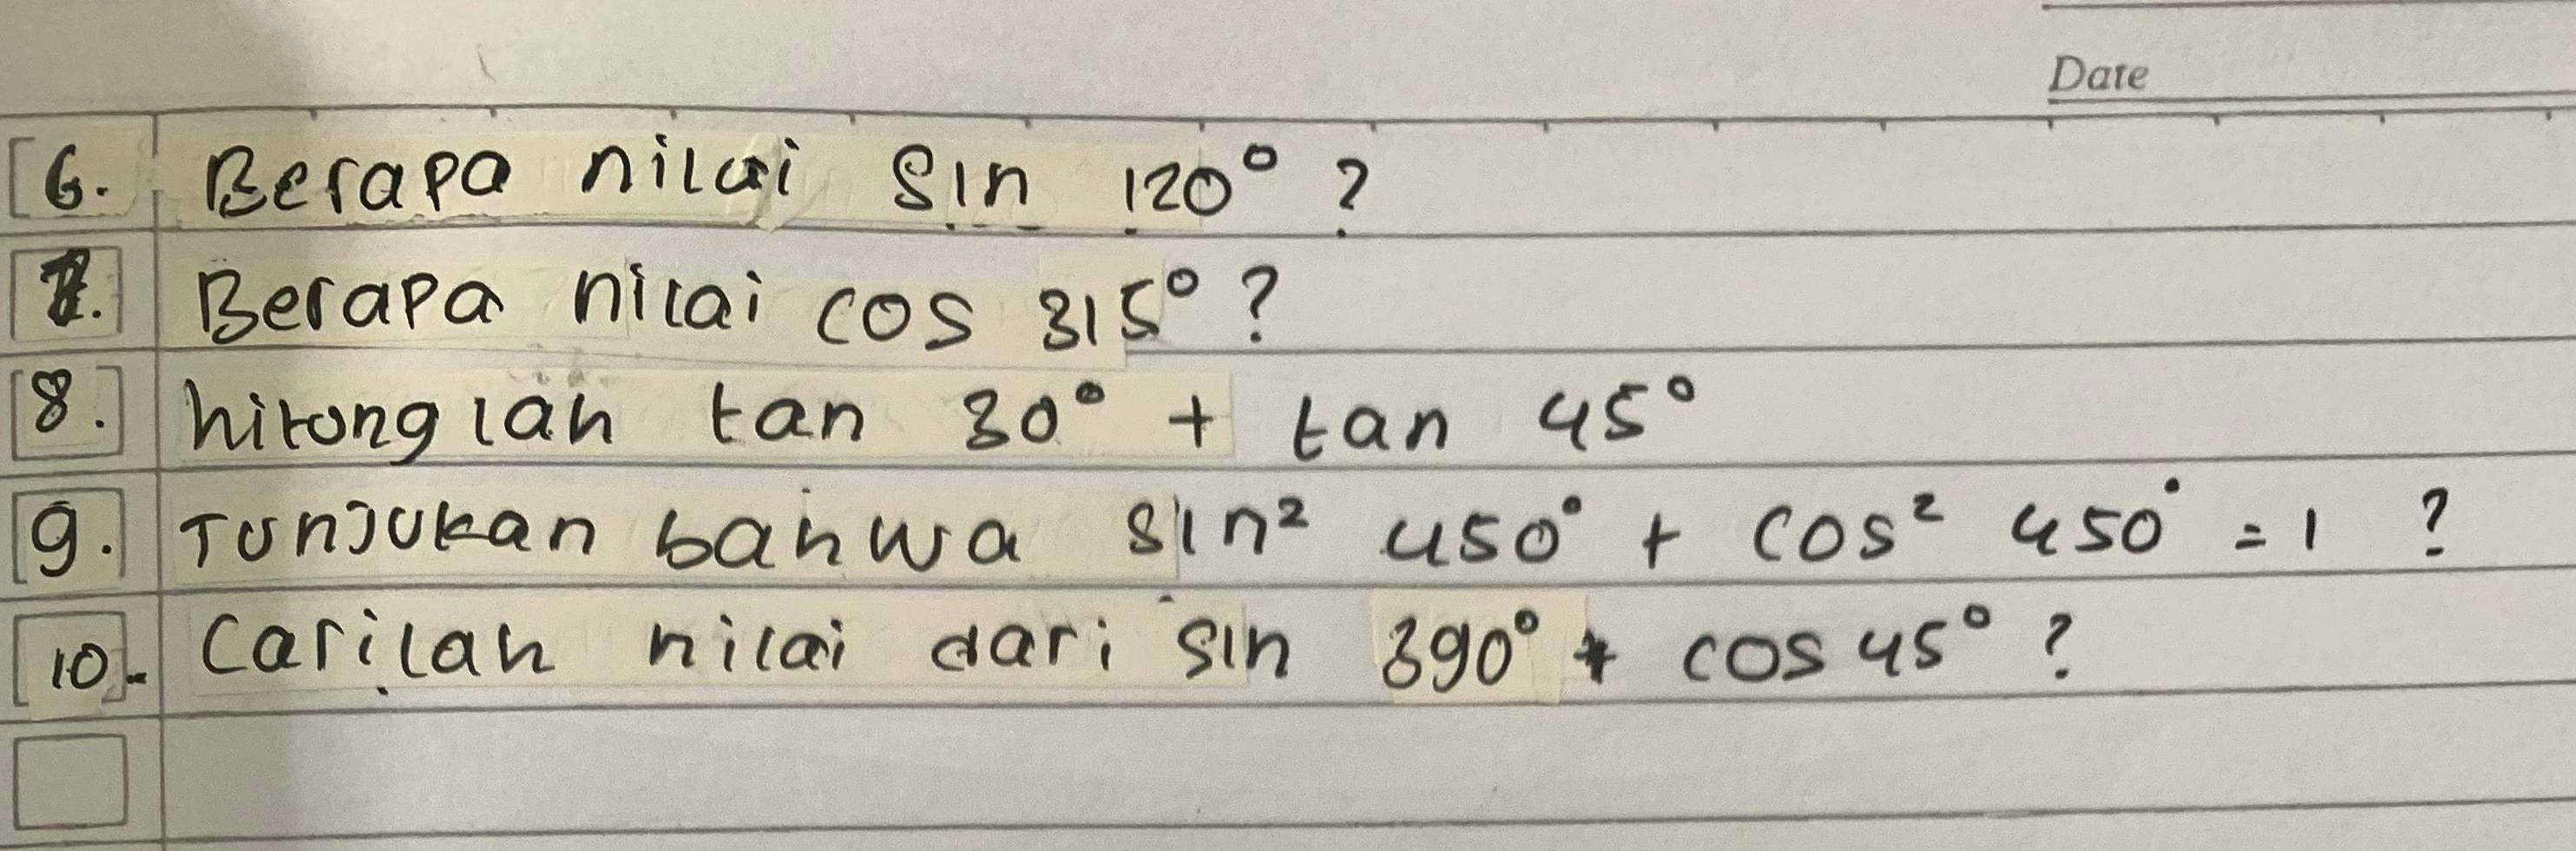 Date
6. Berapa nilai sin 120° ?
7. Berapa nilai cos 315° ?
8. hitunglah tan 30° + tan 45°
9. Tunjukan bahwa sin² 450° + cos² 450° = 1 ?
10. Carilah nilai dari sin 390° + cos 45° ?